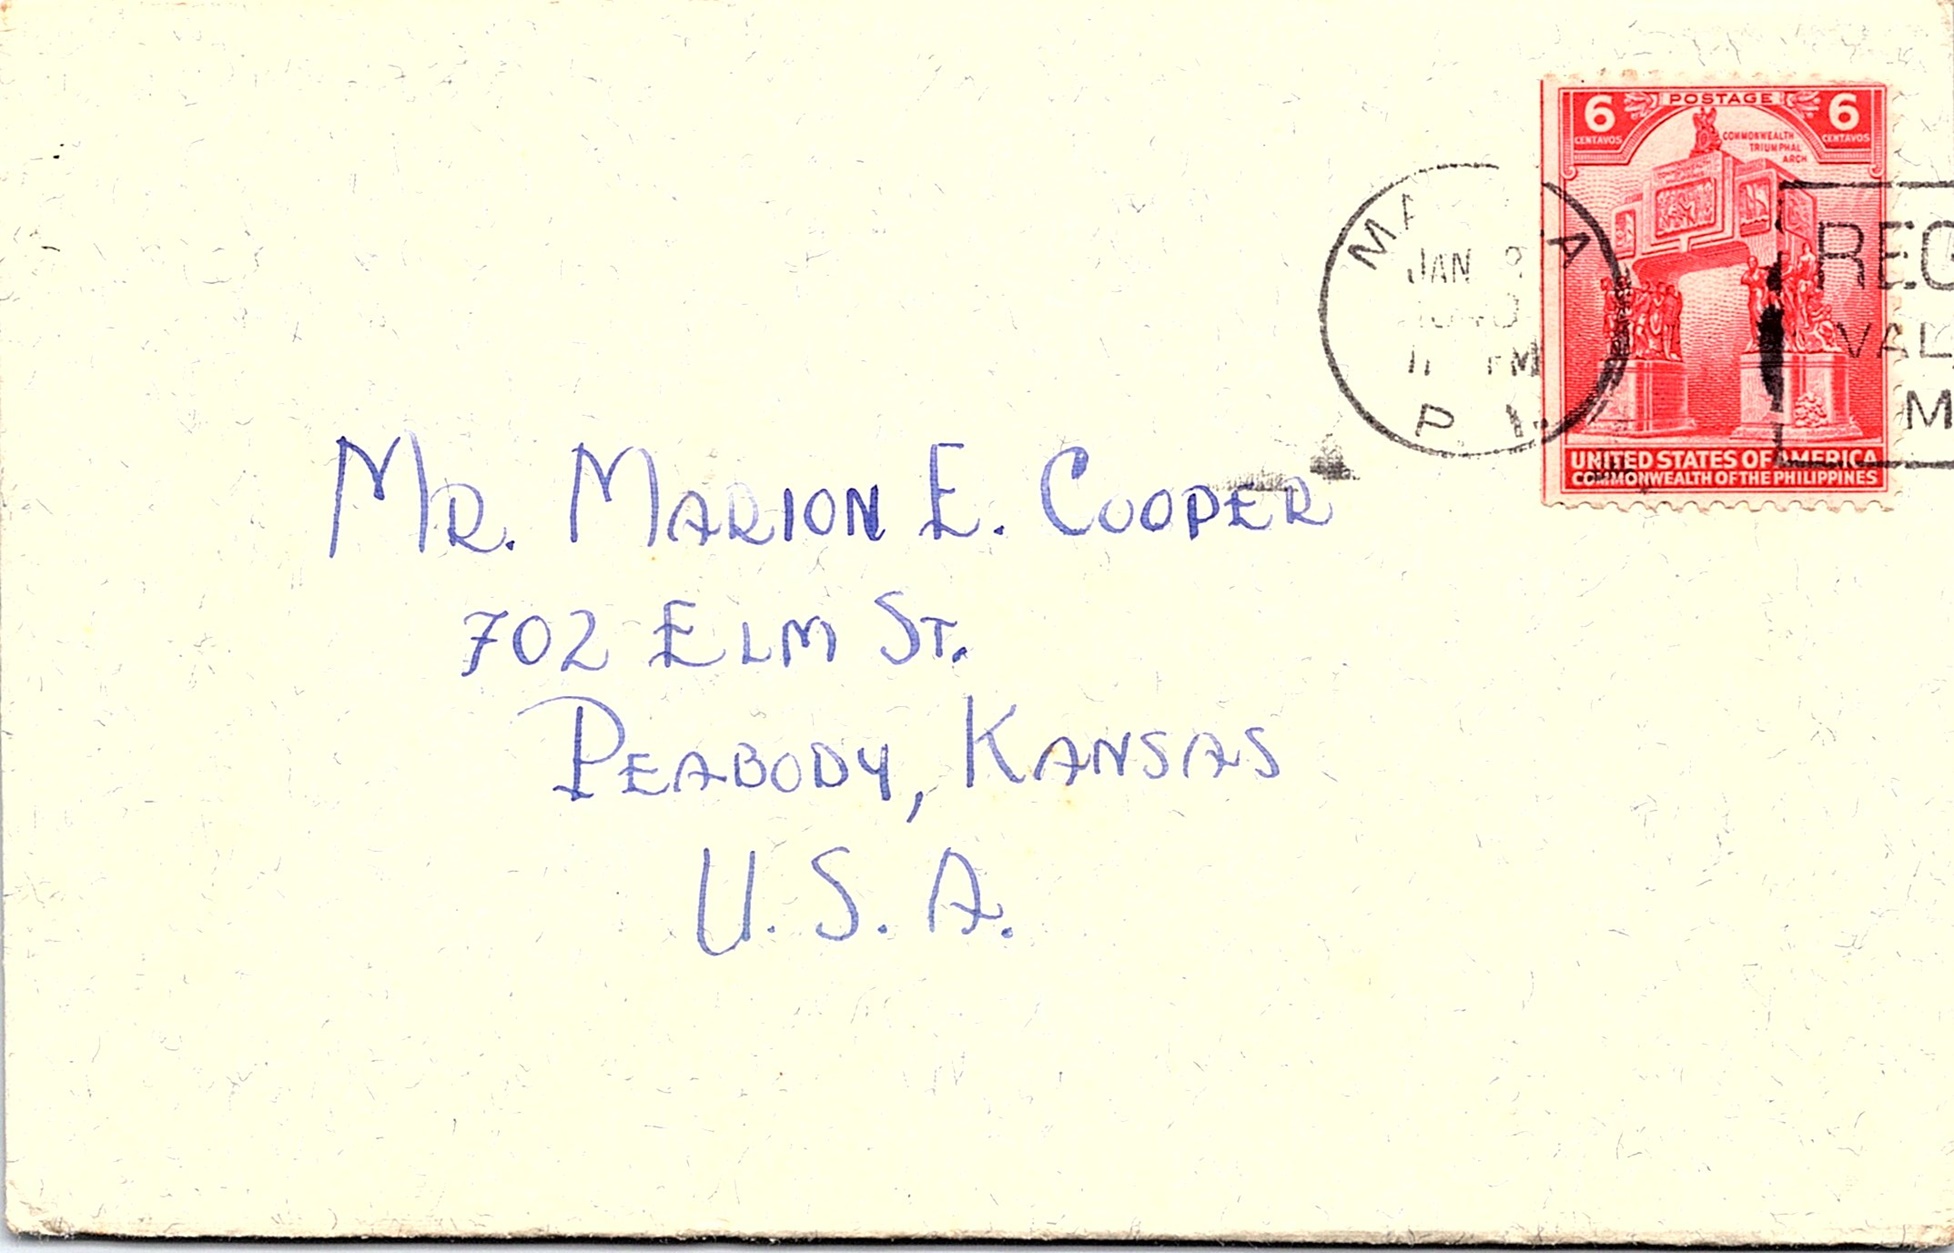 6 POSTAGE 6
CENTAVOS CENTAVOS
COMMONWEALTH
TRIUMPHAL
ARCH
UNITED STATES OF AMERICA
COMMONWEALTH OF THE PHILIPPINES
JAN
P. I.
MR. MARION E. COOPER
702 ELM ST.
PEABODY, KANSAS
U. S. A.